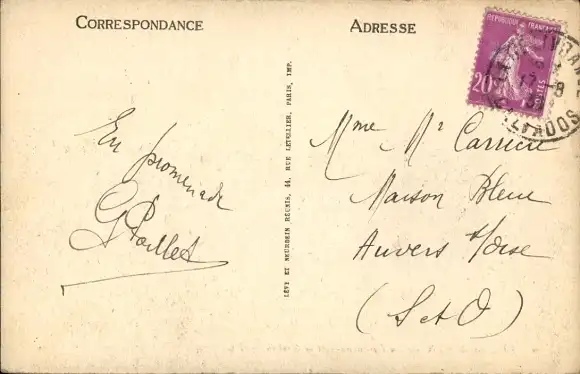 CORRESPONDANCE
ADRESSE
REPUBLIQUE FRANÇAISE
20c
POSTES
17-8
CALVADOS
En promenade
G Paillet
LÉVY ET NEURDEIN RÉUNIS, 44, RUE LETELLIER, PARIS, IMP.
Mme Mr Carrier
Maison Bleue
Auvers s/Oise
(S et O)